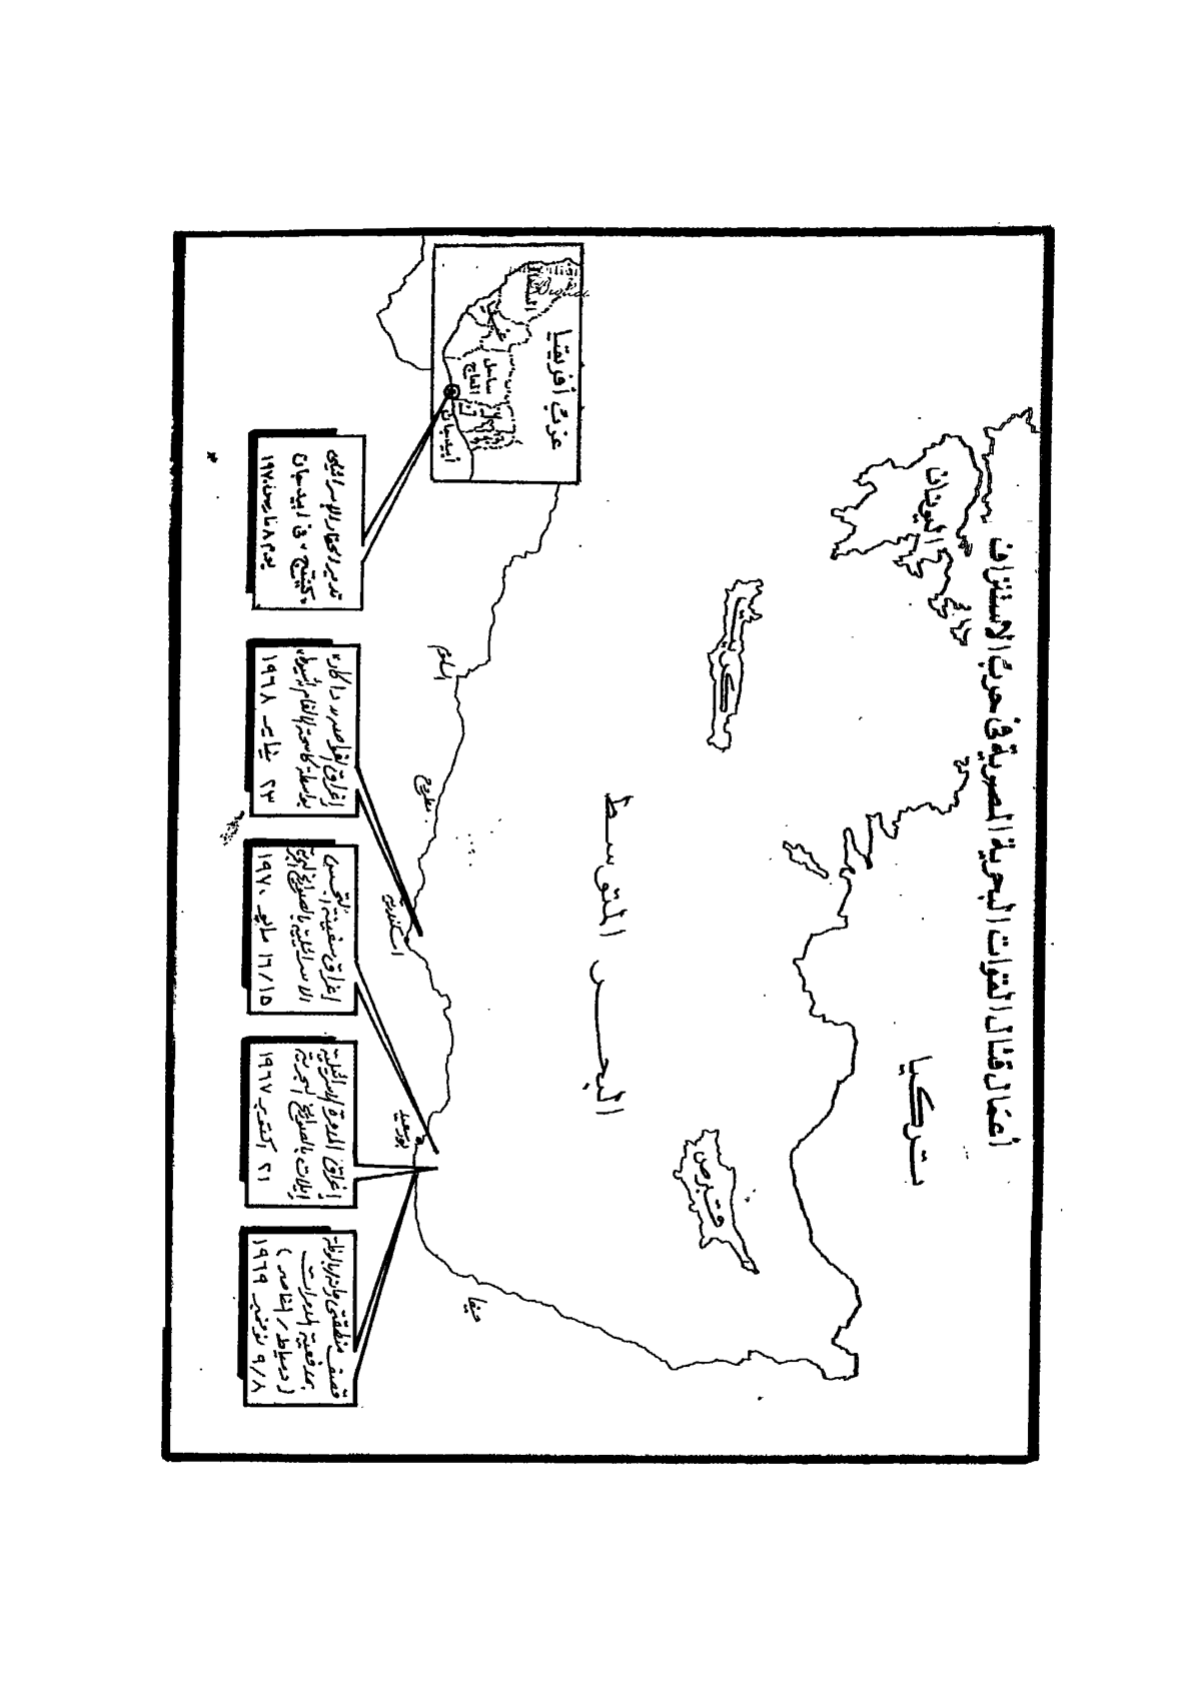 أعمال قتال القوات البحرية المصرية فى حرب الاستنزاف
تركيا
اليونان
خالج
كريت
قبرص
البحر المتوسط
غرب أفريقيا
ساحل
العاج
أبيدجان
السلوم
مطروح
اسكندرية
بورسعيد
حيفا
تدمير الحفار الإسرائيلى
" كينتنج " فى أبيدجان
يوم ٨ مارس ١٩٧٠
إغراق الغواصة " داكار "
بواسطة كاسحة الألغام
٢٣ يناير ١٩٦٨
إغراق سفينة التجسس
الاسرائيلية بالصواريخ البحرية
١٥/١٦ مايو ١٩٧٠
إغراق المدمرة الإسرائيلية
إيلات بالصواريخ البحرية
٢١ أكتوبر ١٩٦٧
قصف منطقتى رمانة وبالوظة
بمدفعية المدمرات
( دمياط / الناصر )
٨/٩ نوفمبر ١٩٦٩